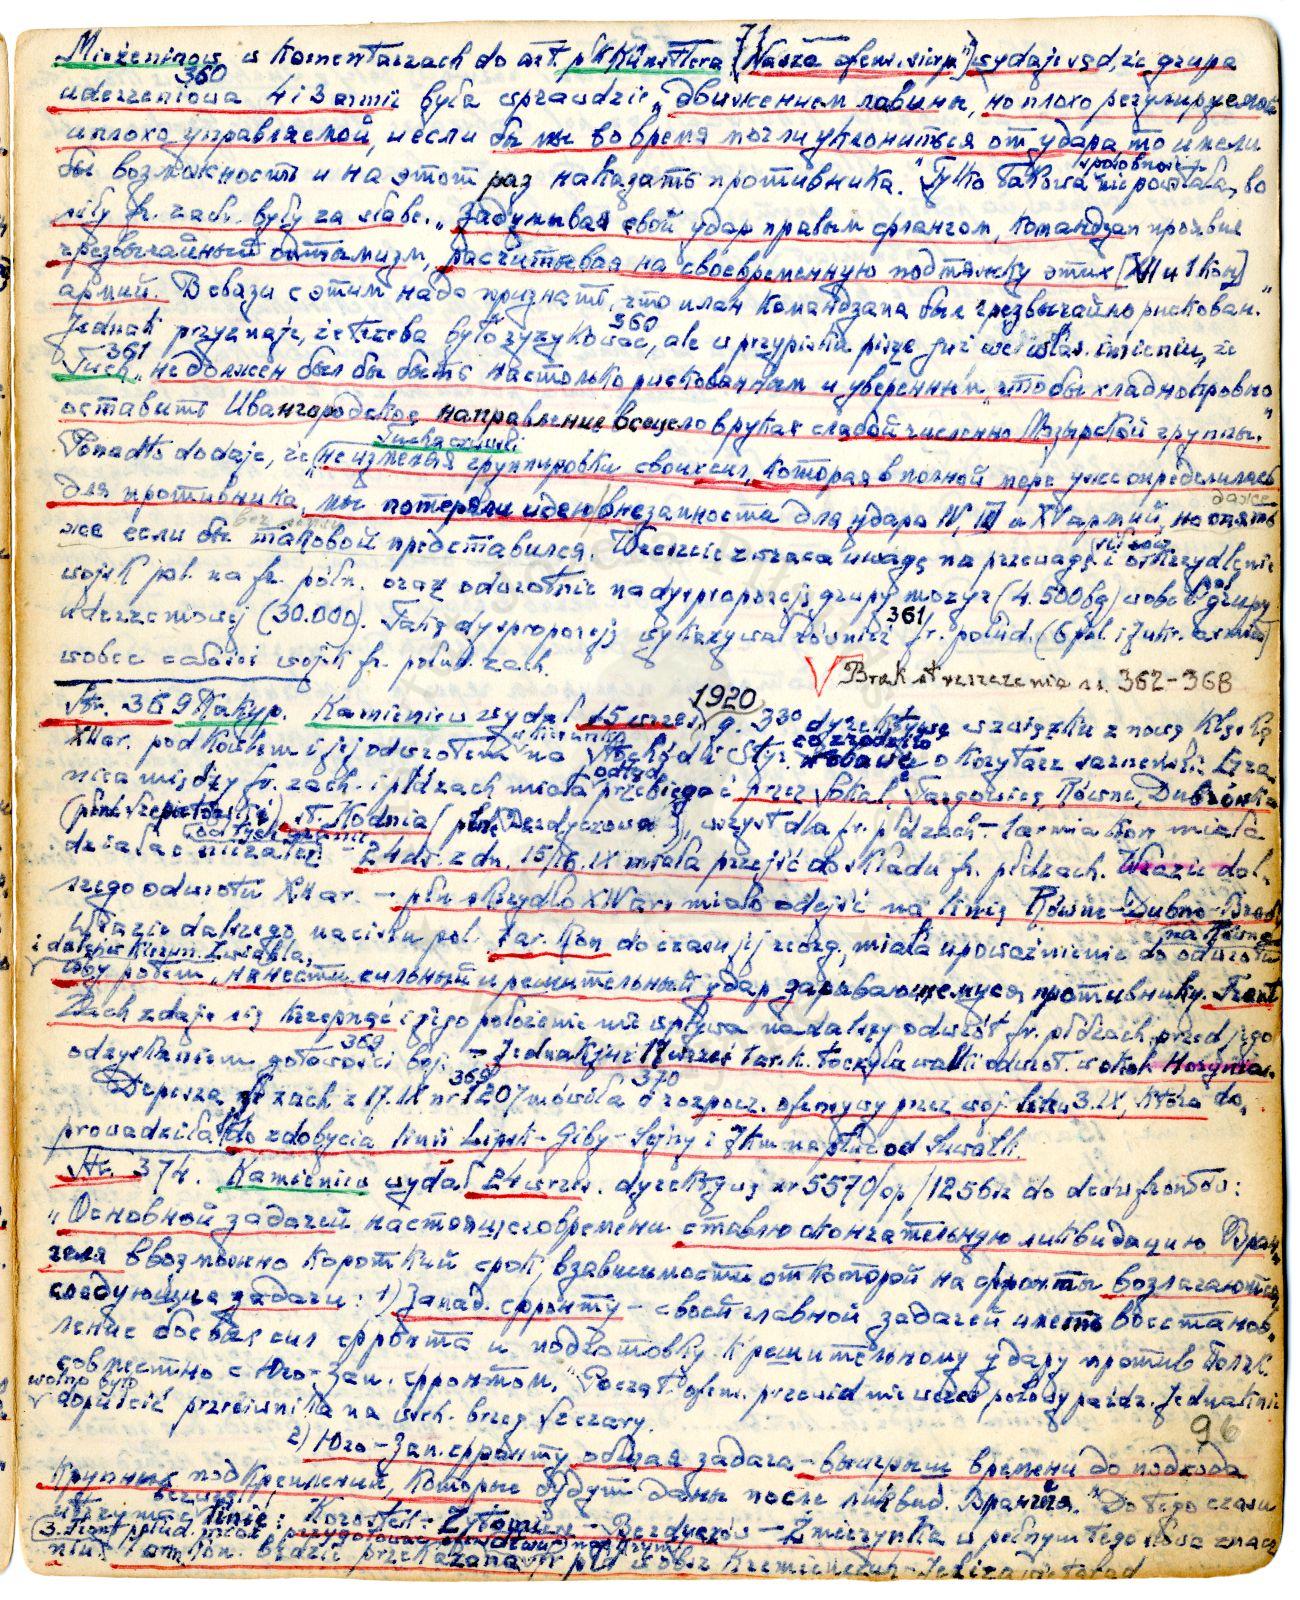 71
Mieżeninow w komentarzach do art. płk Künstlera („Nasza ofens. sierp.") wydaje sąd, że grupa
360
uderzeniowa 4 i 3 armii była wprawdzie „движением лавины, но плохо регулируемой
и плохо управляемой, и если бы мы во время могли уклониться от удара, то имели
бы возможность и на этот раз наказать противника." Tylko takowa nie powstała, bo
siły fr. zach. były za słabe. „Задумывая свой удар правым флангом, командзап проявил
чрезвычайный оптимизм, расчитывая на своевременную подтяжку этих [XII и 1 кон]
армий. В связи с этим надо признать, что план командзапа был чрезвычайно рискован."
Jednak przyznaje, że trzeba było zyzykować, ale w przypisku pisze już we włas. imieniu, że
360
361
Tuch. „не должен был бы быть настолько рискованным и уверенным, чтобы хладнокровно
оставить Ивангородское направление всецело в руках слабой численно Мозырской группы."
Tuchaczewski
Ponadto dodaje, że „не изменяя группировки своих сил, которая в полной мере уже определилась
для противника, мы потеряли идею внезапности для удара IV, III и XV армий, но опять
даже
же если бы таковой представился. Wreszcie zwraca uwagę na przewagę i oskrzydlenie
wojsk pol. na fr. półn. oraz odwrotnie na dysproporcję grupy mozyr (4.500 bg) wobec grupy
pol.
uderzeniowej (30.000). Taką dysproporcję wykazywał również fr. połud. (6 pol. i 1 ukr. armia)
361
wobec całości wojsk fr. połud. zach.
√ Brak streszczenia ss. 362-368
1920
Str. 369 Kakup. Kamieniew wydał 15 wrześ. g. 3³⁰ dyrektywę w związku z nową klęską
XII ar. pod Kowlem i jej odwrotem na Stochód i Styr. co zrodziło obawę o korytarz sarneński. Gra-
odtąd
nica między fr. zach. i płdzach miała przebiegać przez Sokal, Targowicę, Równe, Dubrówka
(płn. Szepetówki), st. Kodnia (płn. Berdyczowa), wszyst dla fr. płdzach - 1 armia kon miała
działać niezależ. od tych granic - 24 ds. z dn. 15/16.IX miała przejść do składu fr. płdzach. W razie dal-
szego odwrotu XII ar. - płn skrzydło XII ar. miało odejść na linię Równe-Dubno-Brody
W razie dalszego nacisku pol. 1 ar. kon do czasu jej reorg. miała upoważnienie do odwrotu
na Równe
i dalej w kierun. Zwiahla,
aby potem „нанести сильный и решительный удар зарывающемуся противнику. Front
Zach zdaje się krzepnąć i jego położenie nie wpływa na dalszy odwrót fr. płdzach. przed jego
odzyskaniem gotowości boj. - Jednak już 17 wrześ 1 ar. k. toczyła walki odwrot. w okol. Horynia.
369
Depesza fr zach z 17.IX nr 1207 mówiła o rozpocz. ofensywy przez woj. litew 3.IX, która do-
369
370
prowadziła do zdobycia linii Lipsk - Giby - Sejny i 7 km na płd od Suwałk.
Str. 374. Kamieniew wydał 24 wrześ. dyrektywę nr 5570/op/1256/sz do dców frontów:
„Основной задачей настоящего времени ставлю окончательную ликвидацию Вран-
геля в возможно короткий срок, в зависимости от которой на фронты возлагаются
следующие задачи: 1) Запад. фронту - своей главной задачей иметь восстанов-
ление боевых сил фронта и подготовку к решительному удару против Польши
совместно с Юго-Зап. фронтом." Począt. ofens. przewid nie wcześ połowy paźdz. Jednak nie
wolno było
dopuścić przeciwnika na wsch. brzeg Szczary.
96
2) Юго-Зап. фронту общая задача - выигрыш времени до подхода
крупных подкреплений, которые будут даны после ликвид. Врангеля." Do tego czasu
utrzymać linię: Korosteń - Żytomierz - Berdyczów - Żmierzynka w pełnym tego słowa znacze-
niu. 1 arm. kon. będzie przekazana fr płd w obsz Kremieńczug-Jekizawietgrad